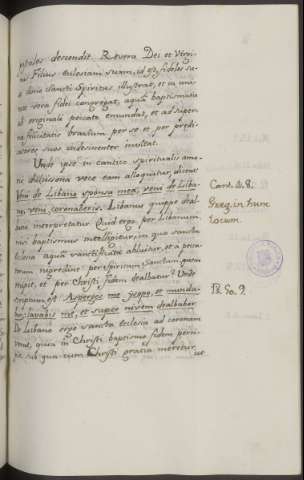 ptales descendit. Revera Dei et Virginis
Filius ecclesiam suam, id est fideles suos
dono Sancti Spiritus illustrat, et in unitate
vera fidei congregat, aqua baptismatis
ab originale peccato emundat, et ad superna
felicitatis bravium per se et per prædicatores
suos indesinenter invitat.
Unde ipse in cantico spiritualis amoris
dulcissona voce eam alloquitur, dicens
Veni de Libano sponsa mea, veni de Libano,
veni, coronaberis. Libanus quippe dealbatio
interpretatur. Quid ergo per Libanum
nisi baptismus intelligitur, in quo sancta
ecclesia aqua sanctificata abluitur, et a peccatorum
nigredine per spiritum Sanctum
et per Christi fidem dealbatur? Unde
scriptum est Asperges me ysopo, et mundabor,
lavabis me, et super nivem dealbabor.
De Libano ergo sancta ecclesia ad coronam
venit, quia in Christi baptismo fidem
sua cum Christi gratia meretur, ut
Cant. 4. 8.
Greg. in hunc
locum.
Ps. 50. 9.